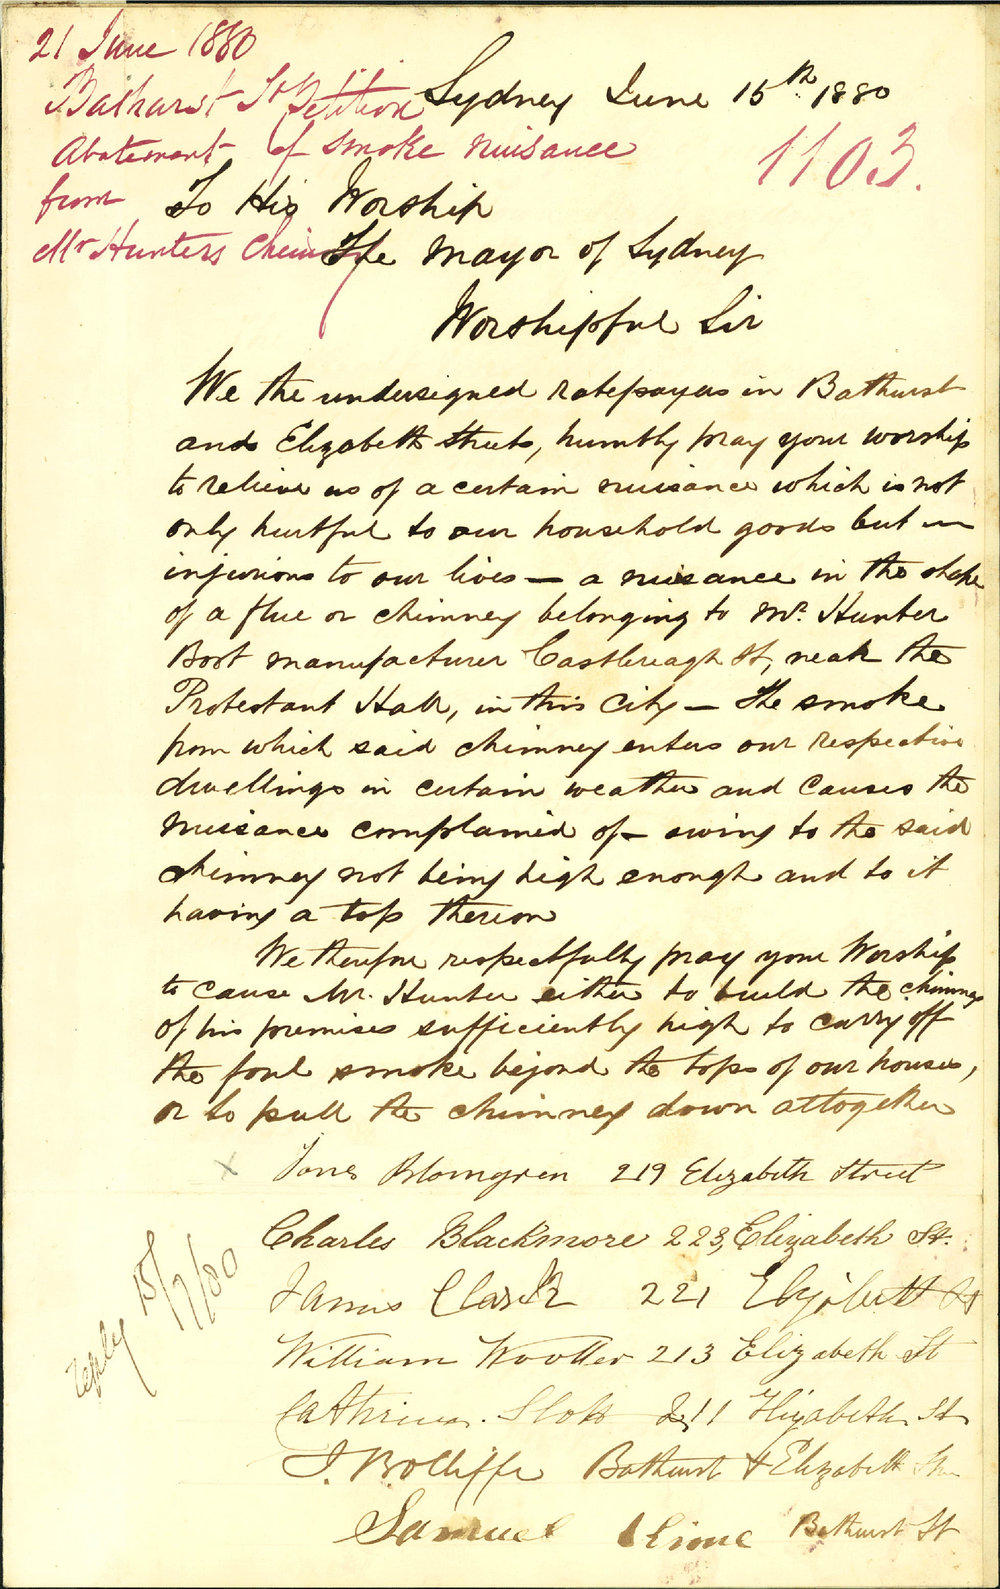 21 June 1880
Bathurst St Petition
Abatement of smoke nuisance
from
Mr Hunters Chimney
Sydney June 15th 1880
1103.
To His Worship
The Mayor of Sydney
Worshipful Sir
We the undersigned ratepayers in Bathurst
and Elizabeth Streets, humbly pray your worship
to relieve us of a certain nuisance which is not
only hurtful to our household goods but
injurious to our lives — a nuisance in the shape
of a flue or chimney belonging to Mr. Hunter
Boot manufacturer Castlereagh St, near the
Protestant Hall, in this City — The smoke
from which said chimney enters our respective
dwellings in certain weather and causes the
nuisance complained of — owing to the said
chimney not being high enough and to it
having a top thereon
We therefore respectfully pray your Worship
to cause Mr. Hunter either to build the chimney
of his premises sufficiently high to carry off
the foul smoke beyond the tops of our houses,
or to pull the chimney down altogether
x Blomgren 219 Elizabeth Street
Charles Blackmore 223, Elizabeth St.
James Clark 221 Elizabeth St
William 213 Elizabeth St
211 Elizabeth St
Bathurst & Elizabeth
Samuel Bathurst St
reply 15/7/80